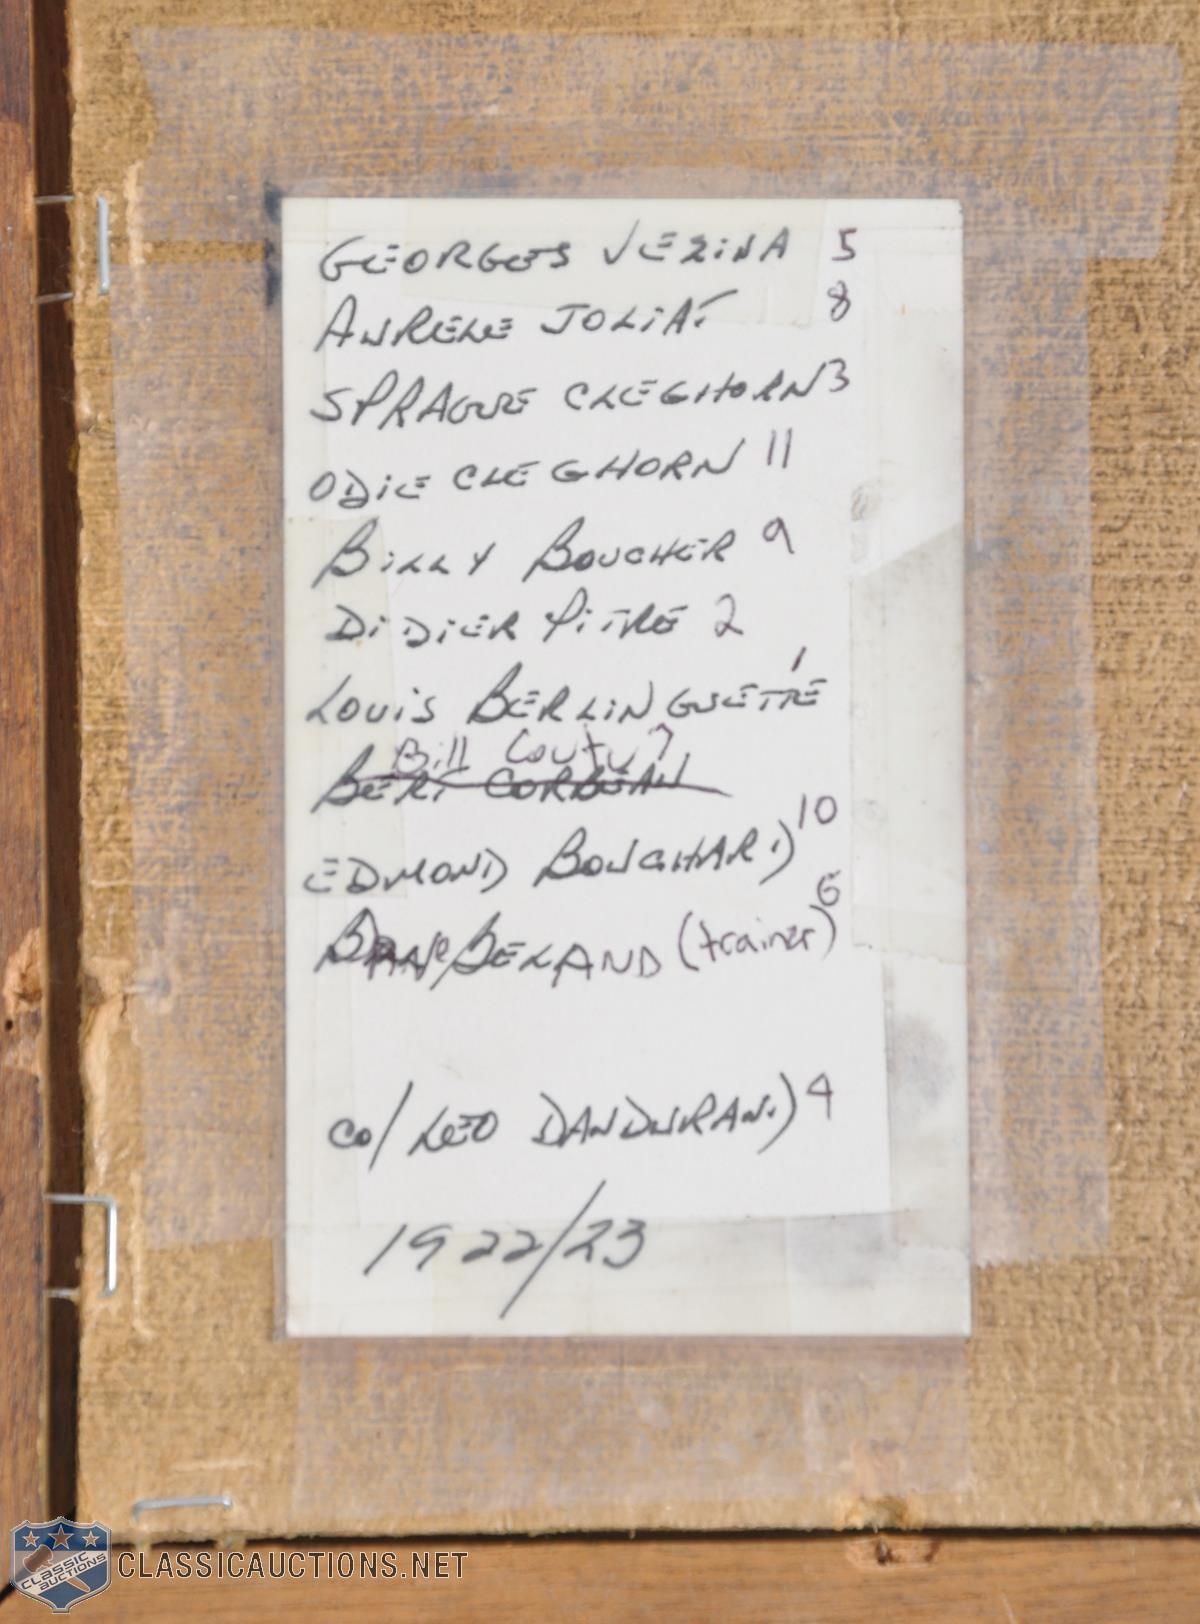 GEORGES VEZINA 5
AURELE JOLIAT 8
SPRAGUE CLEGHORN 3
ODIE CLEGHORN 11
BILLY BOUCHER 9
DIDIER PITRE 2
LOUIS BERLINGUETTE 1
Bill Coutu 7
BERT CORBEAU
EDMOND BOUCHARD 10
BELAND (trainer) 6
CO/ LEO DANDURAND 4
1922/23
CLASSIC AUCTIONS
CLASSICAUCTIONS.NET